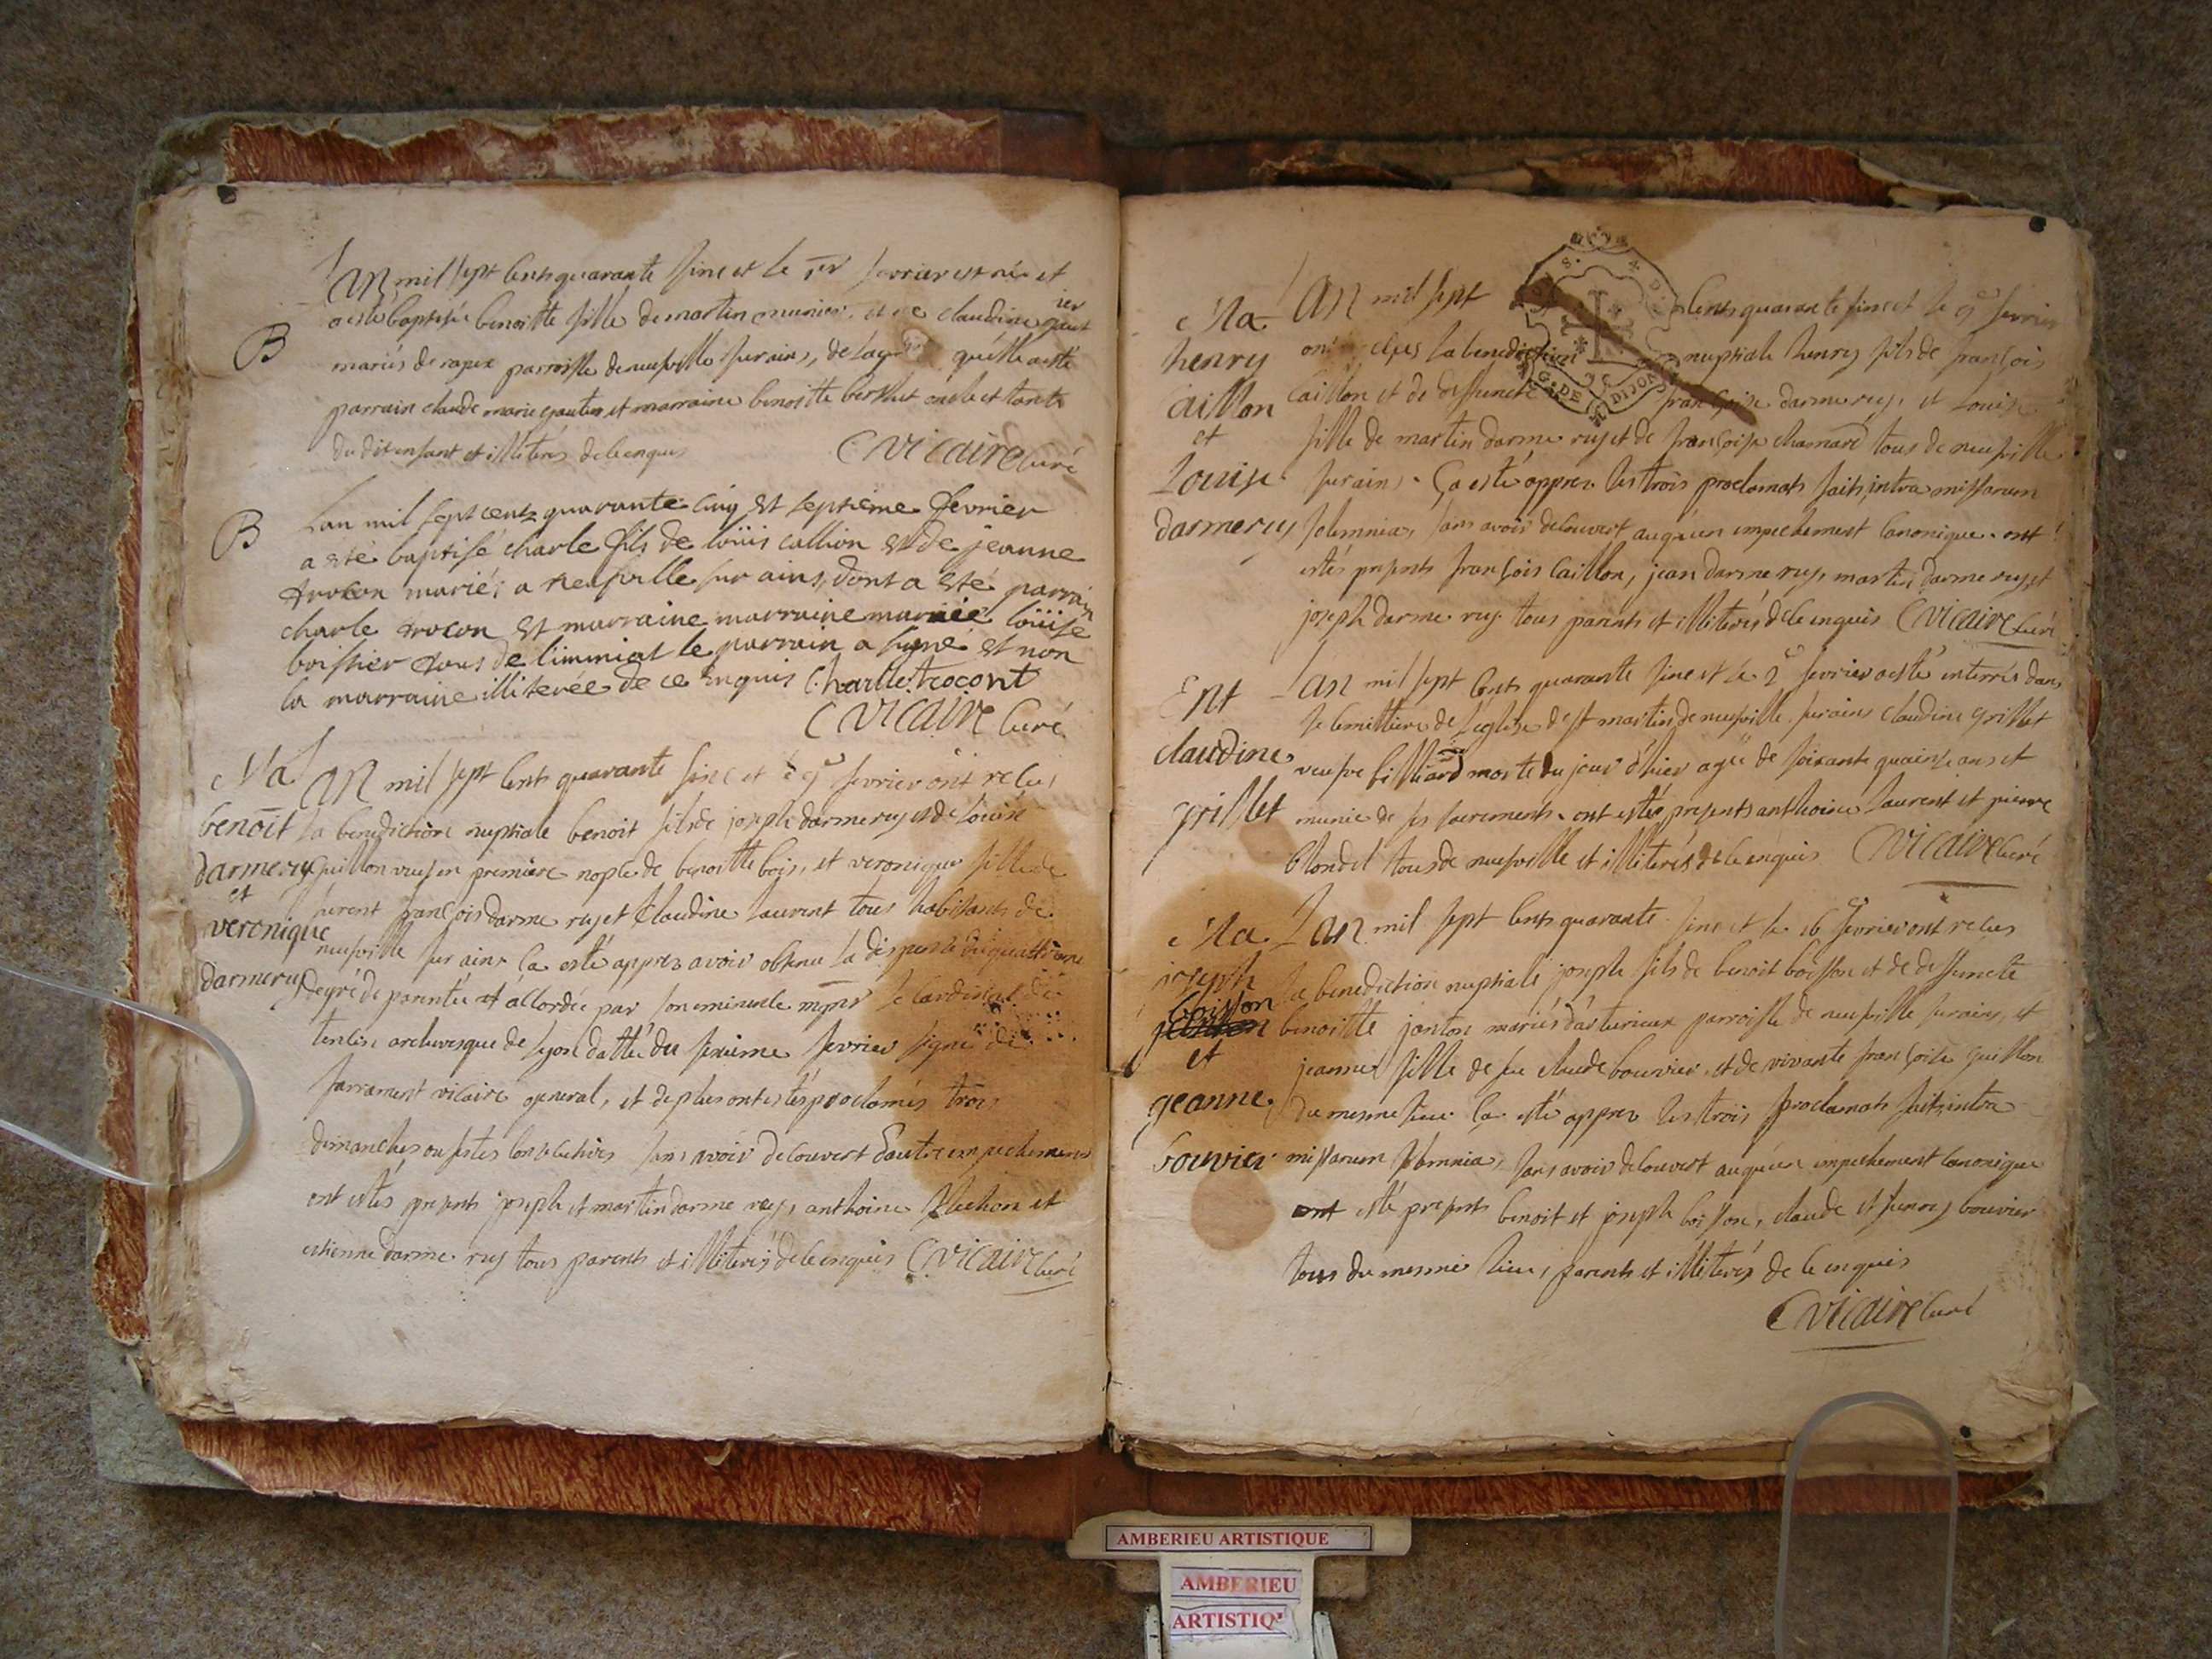 B
Lan mil sept cents quarante sinc et le 1er fevrier est née et
a esté baptisée benoitte fille de martin munier et de claudine
mariés de rapex parroisse de neufville sur ains, de laquelle a esté
parrain claude marie gautier et marraine benoitte berthet oncle et tante
du dit enfant et illiterés de ce enquis
C vicaire curé
B
Lan mil sept cents quarante cinq et septième fevrier
a été baptisé charle fils de loüis callion et de jeanne
trocon mariés a neufville sur ains, dont a esté parrain
charle trocon et marraine marraine mariée loüise
boissier tous de simmiat le parrain a signé et non
la marraine illiterée de ce enquis Charlle trocont
C vicaire curé
Ma
benoit
darmerey
et
veronique
darmerey
Lan mil sept cents quarante sinc et le 9e fevrier ont recus
la benediction nuptiale benoit fils de joseph darmerey et de loüise
guillon veuf en premiere nopce de benoitte bois, et veronique fille de
françois darmerey et claudine laurent tous habitants de
neufville sur ains ça esté apprez avoir obtenu la dispense du quatrieme
degré de parentée accordée par son eminence mgnr le cardinal de
tencin archevesque de lyon dattée du sixieme fevrier signé de
sarrament vicaire general, et de plus ont estés proclamés trois
dimanches ou festes consecutives sans avoir decouvert dautre empechement
ont estés presents joseph et martin darmerey, anthoine et
etienne darmerey tous parents et illiterés de ce enquis C vicaire curé
Ma
henry
caillon
et
Louise
darmerey
Lan mil sept cents quarante sinc et le 9e fevrier
ont recus la benediction nuptiale henry fils de françois
caillon et de deffuncte françoise darmerey, et Louise
fille de martin darmerey et de françoise chanard tous de neufville
sur ains. Ça esté apprez les trois proclamats faits intra missarum
solemnia, sans avoir decouvert auqu'un empechement canonique. ont
estés presents françois caillon, jean darmerey, martin darmerey et
joseph darmerey tous parents et illiterés de ce enquis C vicaire curé
Ent
claudine
grillet
Lan mil sept cents quarante sinc et le 2e fevrier a esté enterrée dans
le cemittiere de l'eglise de st martin de neufville sur ains claudine grillet
veufve billiard morte du jour d'hier agée de soixante quainze ans et
munie de ses sacrements. ont estés presents anthoine laurent et pierre
blondel tous de neufville et illiterés de ce enquis C vicaire curé
Ma
joseph
boisson
et
jeanne
bouvier
Lan mil sept cents quarante sinc et le 16 fevrier ont recus
la benediction nuptiale joseph fils de benoit boisson et de deffuncte
benoitte janton mariés d'arturieux parroisse de neufville sur ains, et
jeanne fille de feu claude bouvier, et de vivante françoise guillon
du mesme lieu ça esté apprez les trois proclamats faits intra
missarum solemnia, sans avoir decouvert auqu'un empechement canonique
ont esté presents benoit et joseph boisson, claude et henry bouvier
tous du mesme lieu, parents et illiterés de ce enquis
C vicaire curé
G. DE DIJON
AMBERIEU ARTISTIQUE
AMBERIEU
ARTISTIQ